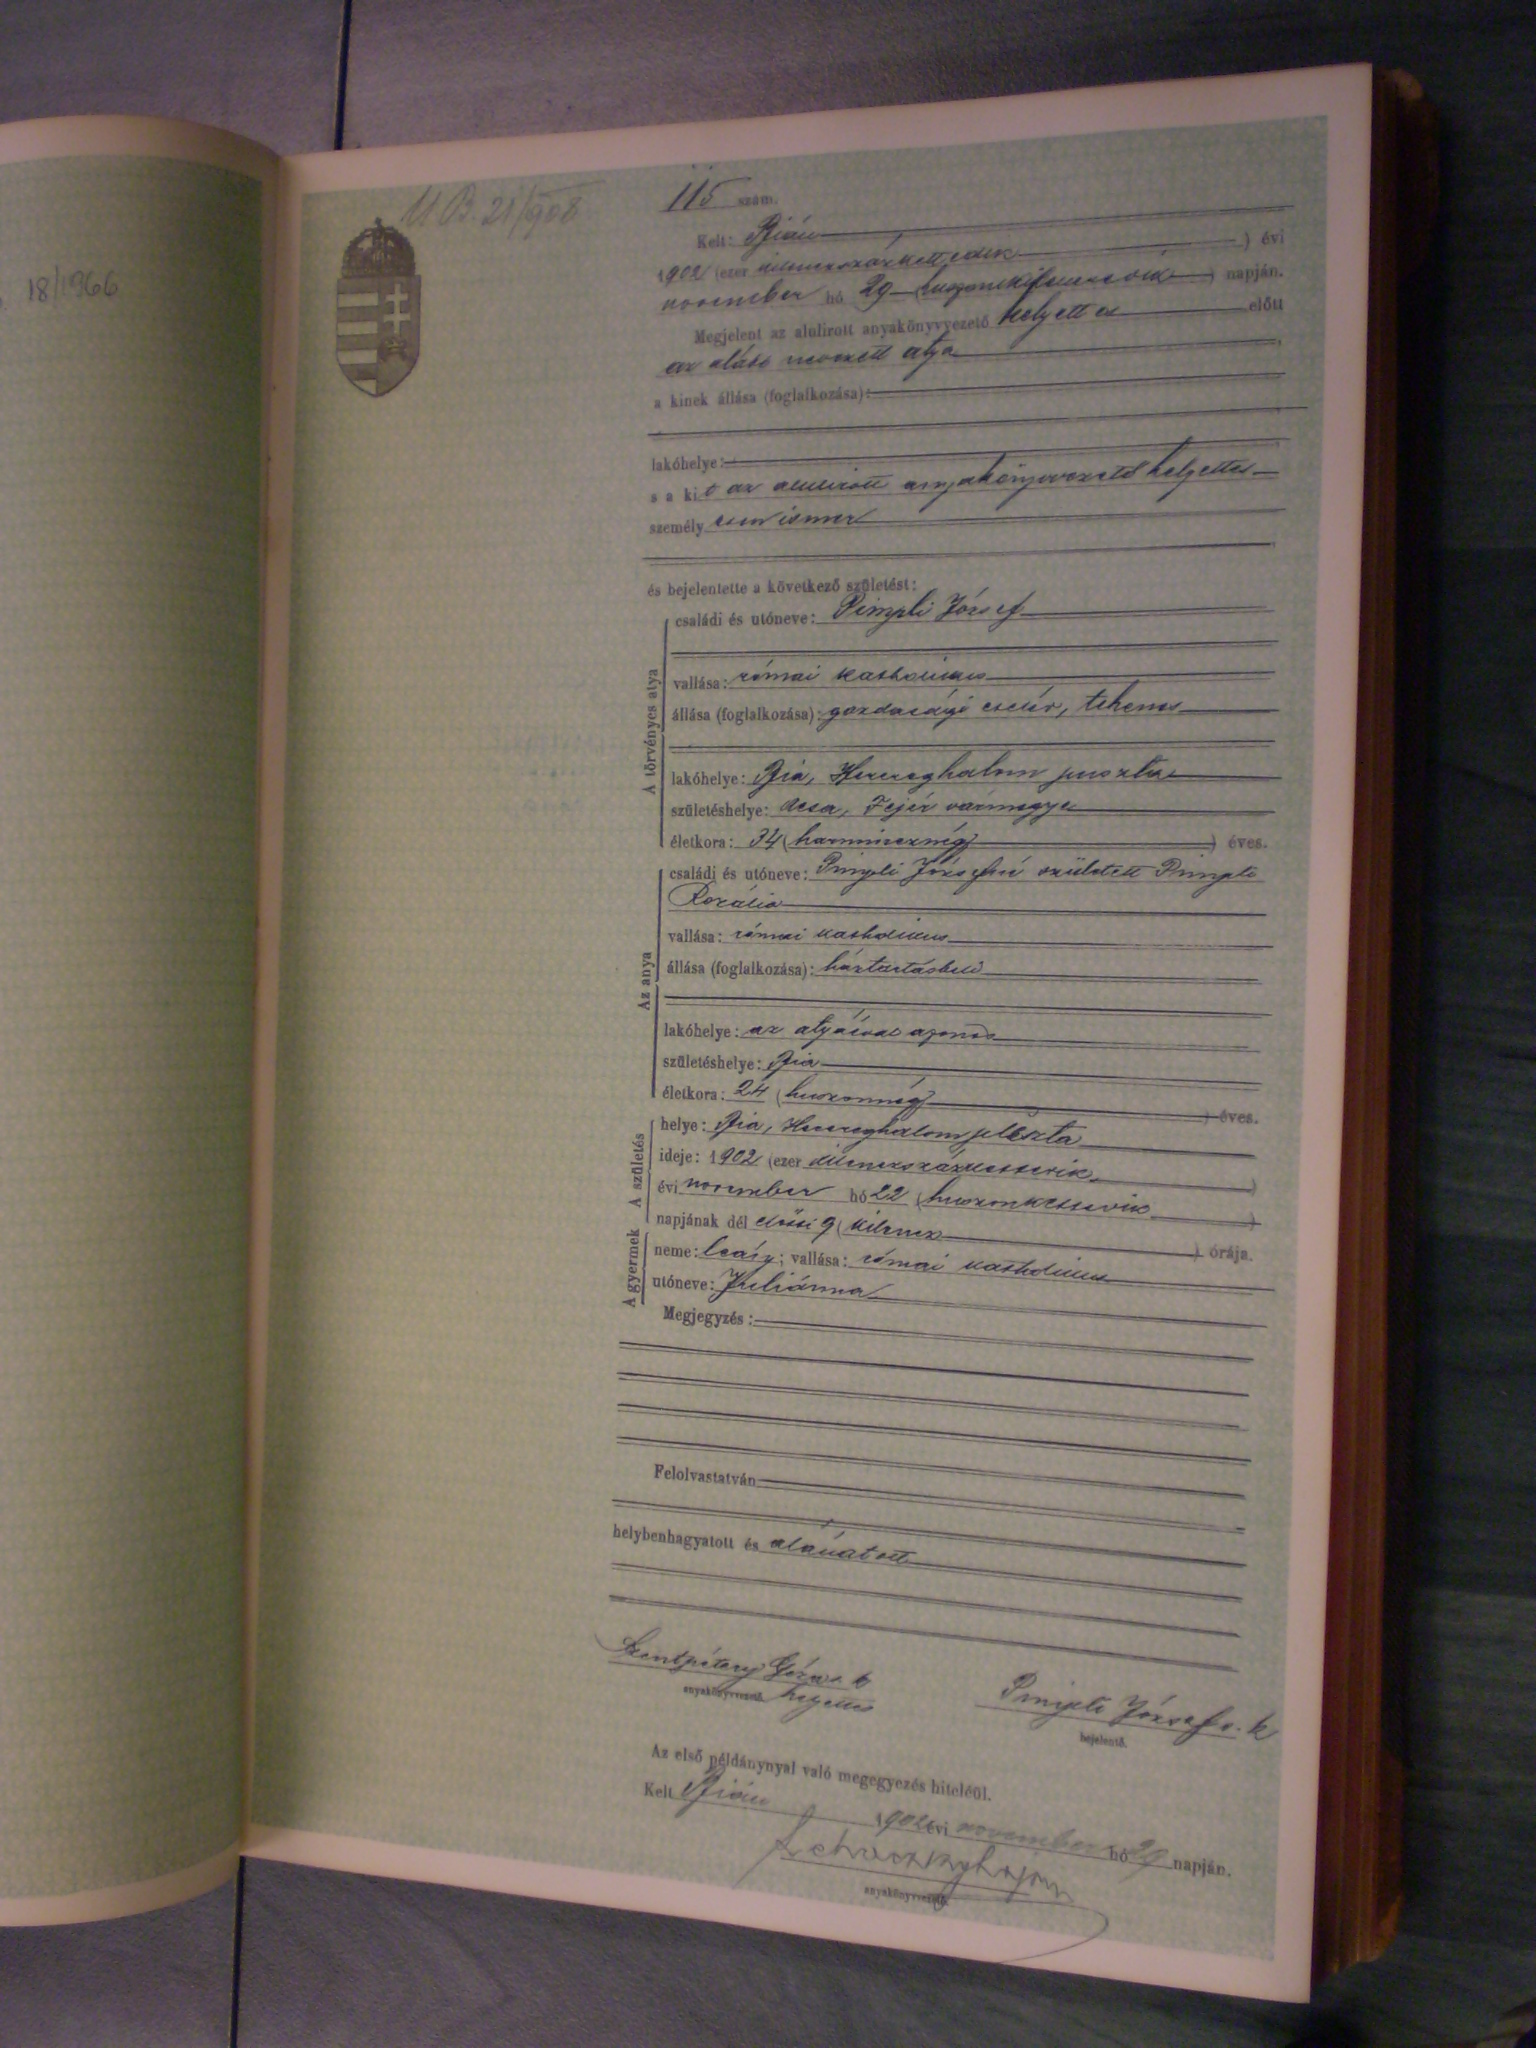 18/1966
U B. 21/908
115 szám.
Kelt: Bián ) évi
1902 (ezer kilenczszázkettedik
november hó 29 (huszonkilenczedik ) napján.
Megjelent az alulirott anyakönyvvezető helyettes előtt
az alább nevezett atya
a kinek állása (foglalkozása):
lakóhelye:
s a kit az alulirott anyakönyvvezető helyettes
személyesen ismer
és bejelentette a következő születést:
A törvényes atya
családi és utóneve: Pimpli József
vallása: római katholikus
állása (foglalkozása): gazdasági cseléd, tehenes
lakóhelye: Bia, Herczeghalom puszta
születéshelye: Acsa, Fejér vármegye
életkora: 34 (harmincznégy ) éves.
Az anya
családi és utóneve: Pimpli Józsefné született Pimpli
Rozália
vallása: római katholikus
állása (foglalkozása): háztartásbeli
lakóhelye: az atyáéval azonos
születéshelye: Bia
életkora: 24 (huszonnégy ) éves.
A születés
helye: Bia, Herczeghalom puszta
ideje: 1902 (ezer kilenczszázkettedik )
évi november hó 22 (huszonkettedik )
napjának dél előtti 9 (kilencz ) órája.
A gyermek
neme: leány; vallása: római katholikus
utóneve: Juliánna
Megjegyzés:
Felolvastatván
helybenhagyatott és aláiratott
Szentpétery Géza s. k
anyakönyvvezető helyettes
Pimpli József s. k
bejelentő.
Az első példánynyal való megegyezés hiteléül.
Kelt Bián 1902 évi november hó 29 napján.
anyakönyvvezető.